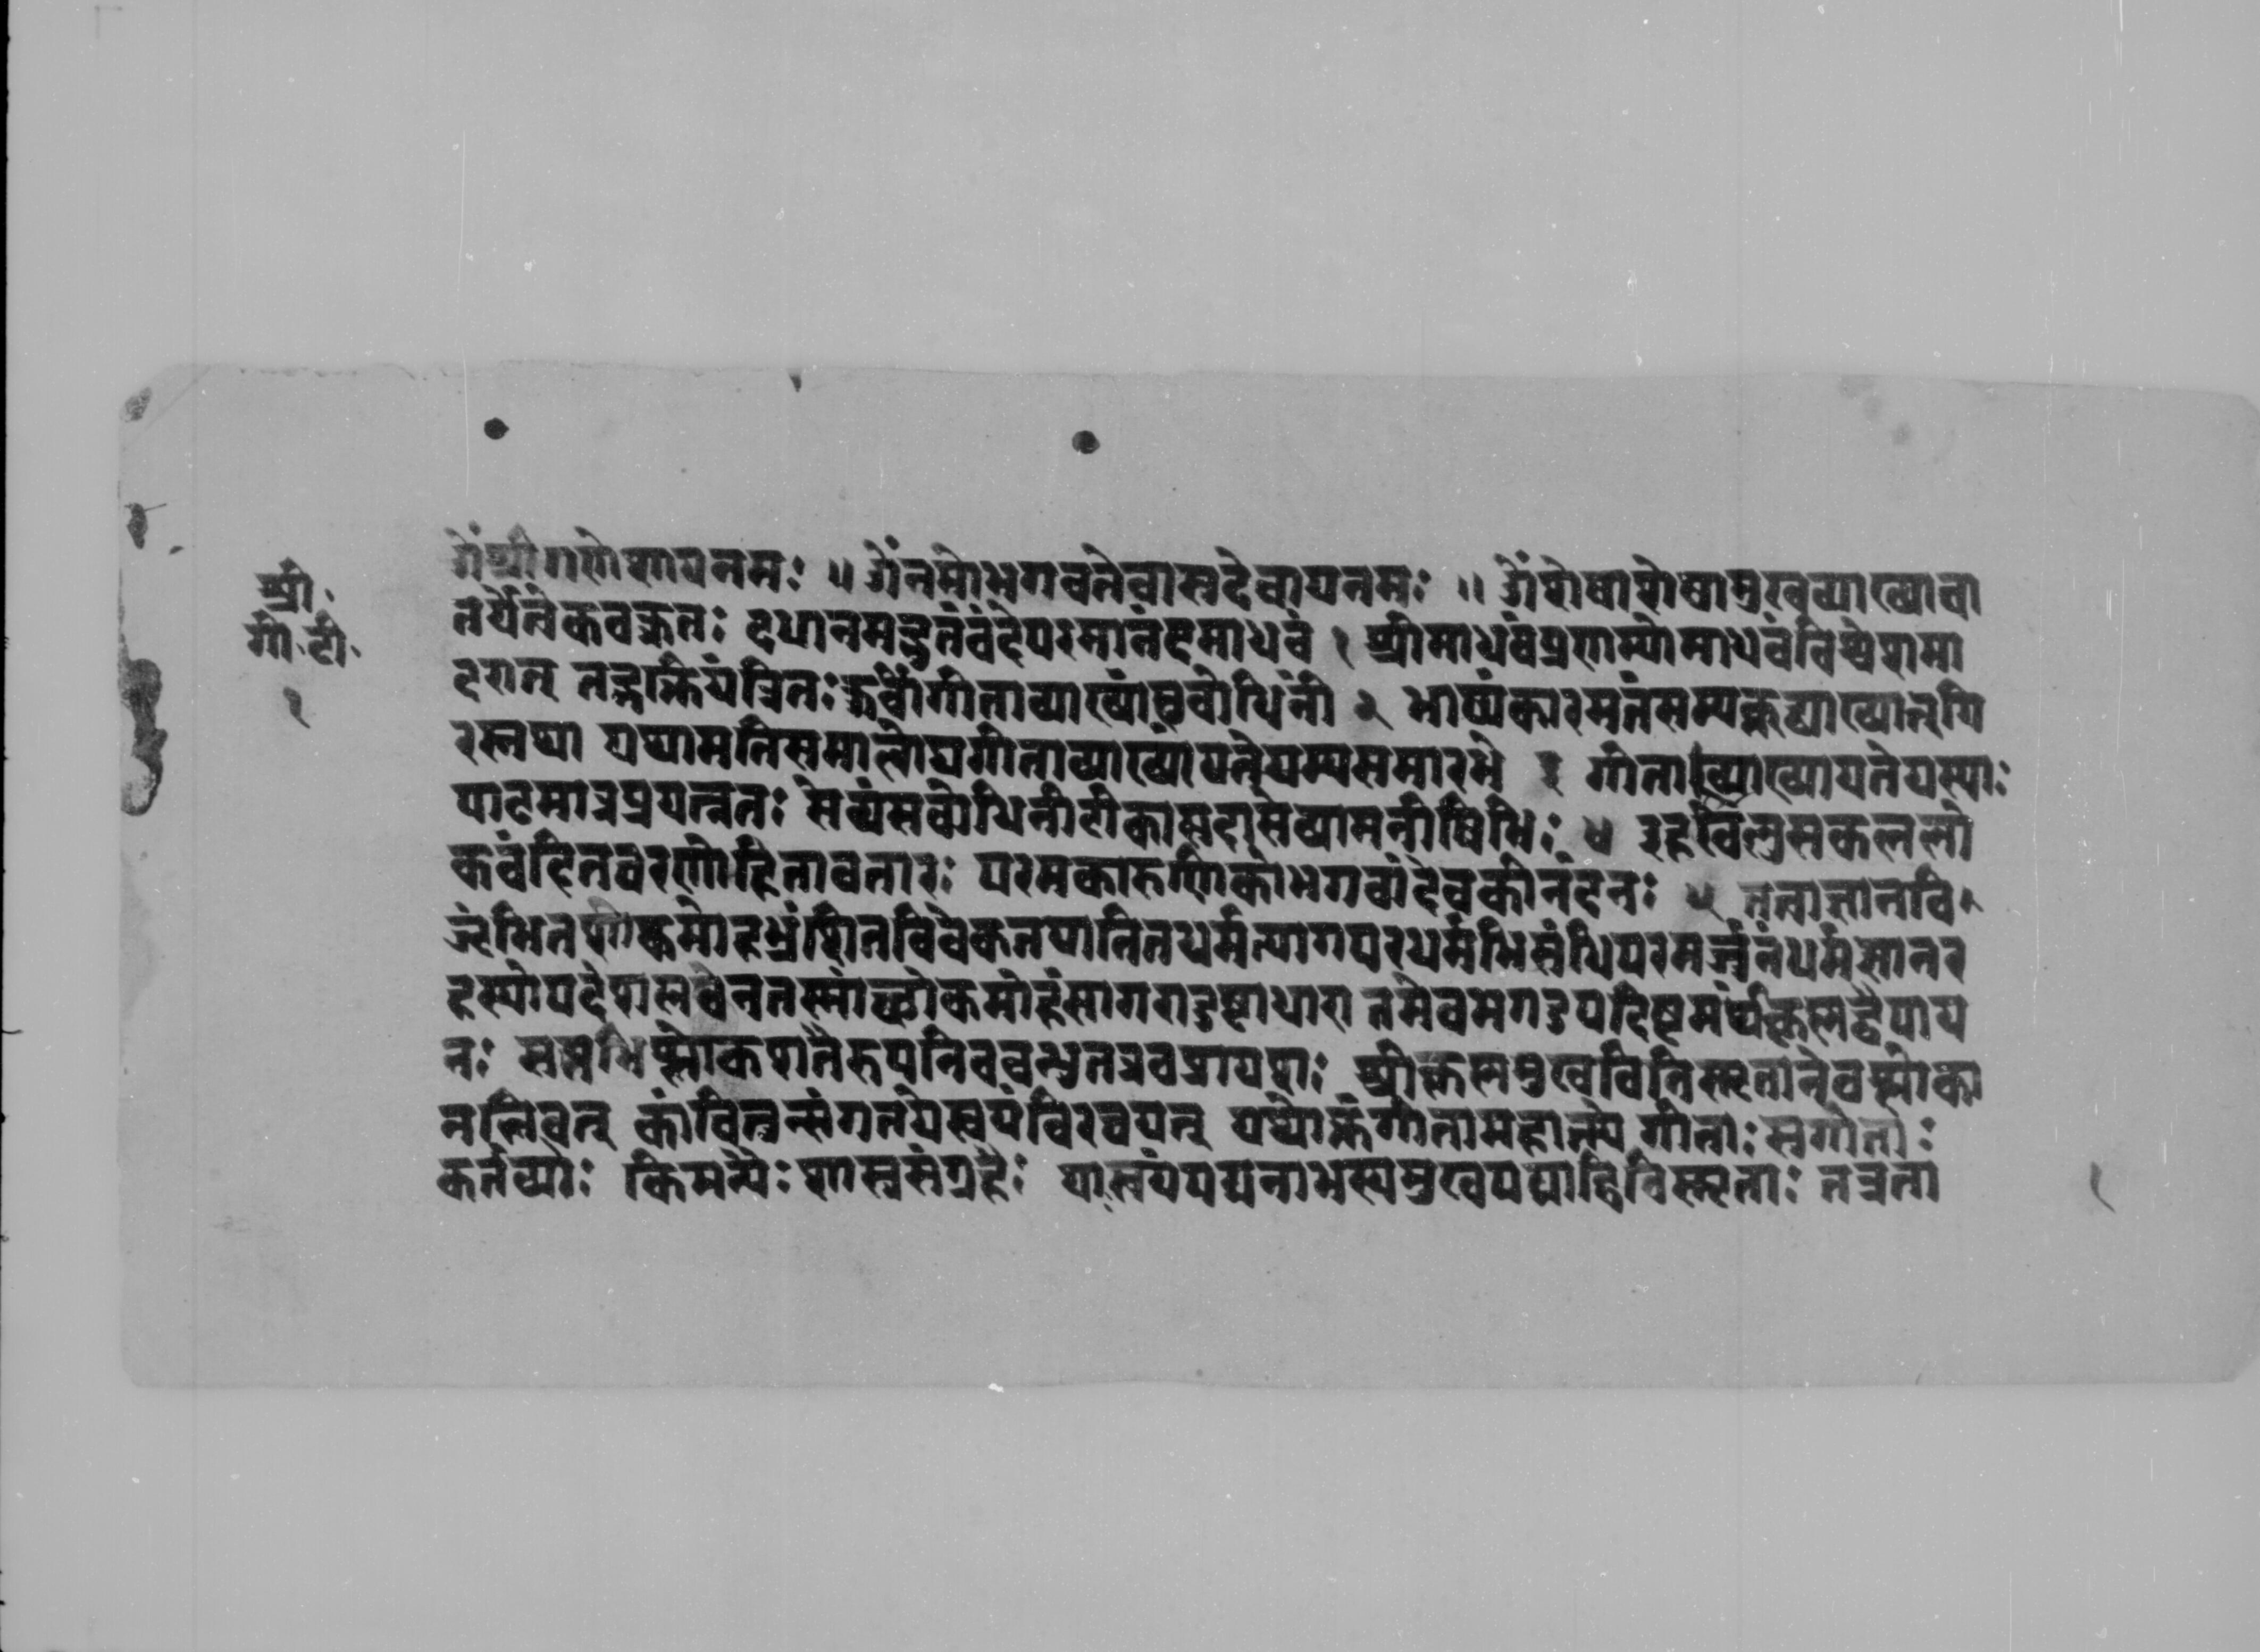 ओंश्रीगणेशायनमः ॥ ओंनमोभगवतेवासुदेवायनमः ॥ ओंशेषाशेषामुखव्याख्याचा
श्री.
गी.टी.
१
तुर्यंत्वेकवक्त्रतः दधानमद्भुतंवंदेपरमानंदमाधवं १ श्रीमाधवंप्रणाम्योमाधवंविश्वेशमा
दरात् तद्भक्तियंत्रितःकुर्वेगीताव्याख्यांसुबोधिनीं २ भाष्यकारमतंसम्यक्तद्व्याख्यातृगि
रस्तथा यथामतिसमालोच्यगीताव्याख्यांयत्नेयम्यसमारभे ३ गीताव्याख्यायतेयस्याः
पाठमात्रप्रयत्नतः सेव्यंसबोधिनीटीकासदासेव्यामनीषिभिः ४ इहखलुसकललो
कवंदितचरणोहितावतारः परमकारुणिकोभगवांदेवकीनंदनः ५ तत्वाज्ञानवि
जृंभितशोकमोहभ्रंशितविवेकतयातितधर्मत्यागपरधर्मभिसंधिपरमर्जुनंधर्मज्ञानर
हस्योपदेशप्लवेनतस्माच्छोकमोहसागरादुद्दधारा तमेवमेगदुपदिष्टमर्थंकृस्मद्वैपाय
नः सप्तभिश्लोकशतैरुपनिबबन्धतत्रवप्रायशाः श्रीकृस्ममुखविनिसृतानेवश्लोका
नलिखत् कांचित्तत्संगतयेस्वयंविरचयत् यथोक्तंगीतामहात्म्ये गीताःसुगीताः
कर्तव्याः किमन्यैःशास्त्रसंग्रहैः यास्वयंपद्मनाभस्यमुखपद्माद्विविसृताः तत्रता
१